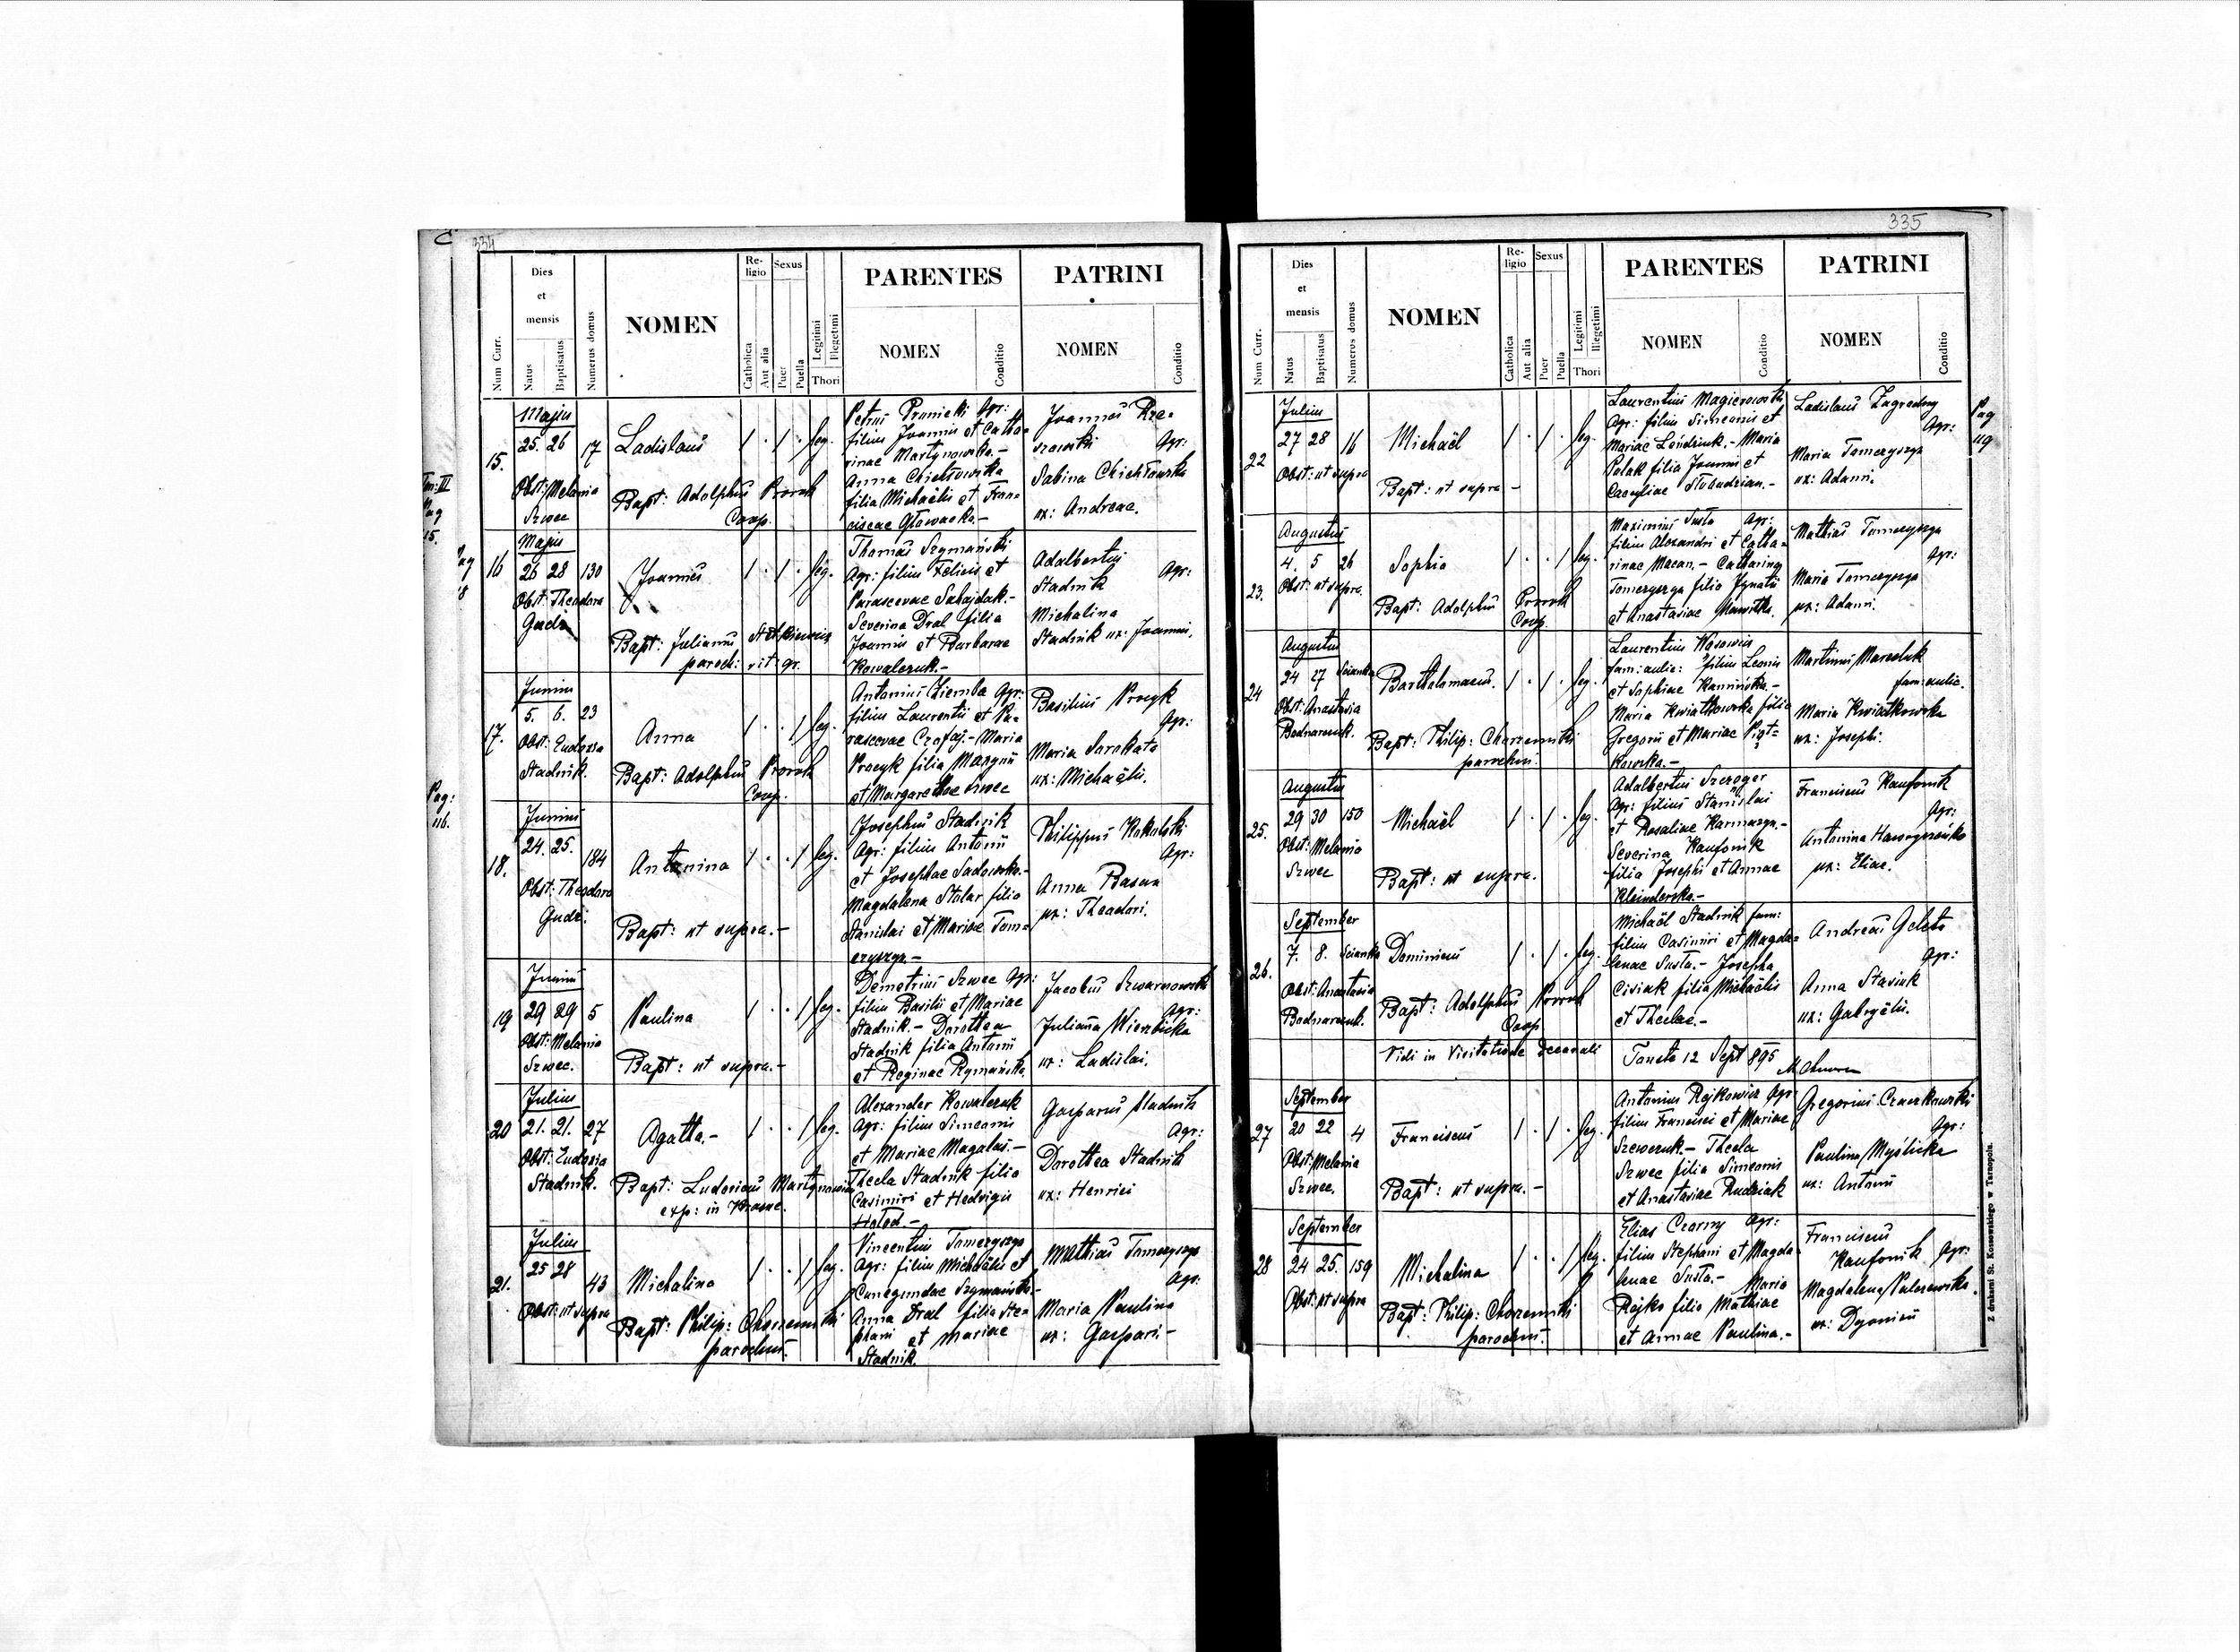 334
Num Curr.
Dies
et
mensis
Natus
Baptisatus
Numerus domus
NOMEN
Religio
Catholica
Aut alia
Sexus
Puer
Puella
Legitimi
Illegetimi
Thori
PARENTES
NOMEN
Conditio
PATRINI
NOMEN
Conditio
15.
Majus
25. 26 17
Obst: Melania
Szwec
Ladislaus
Bapt: Adolphus Prorok
Coop.
1 . 1 . leg.
Petrus Prunicki Agr:
filius Joannis et Catha-
rinae Martynowska.-
Anna Chichłowska
filia Michaëlis et Fran-
ciscae Głowacka.-
Joannes Rze-
szowski Agr:
Sabina Chichłowska
ux: Andreae.
Pag
15.
16
Majus
26 28 130
Obst: Theodora
Gudz
Joannes
Bapt: Julianus
paroch: rit. gr.
1 . 1 . leg.
Thomas Szymański
Agr: filius Felicis et
Parascevae Sahajdak.-
Severina Dral filia
Joannis et Barbarae
Kowalczuk.-
Adalbertus
Stadnik Agr:
Michalina
Stadnik ux: Joannis.
17.
Junius
5. 6. 23
Obst: Eudoxia
Stadnik.
Anna
Bapt: Adolphus Prorok
Coop.
1 . . 1 leg.
Antonius Ziemba Agr:
filius Laurentii et Pa-
rascevae Czofaj.- Maria
Procyk filia
et Margarethae Szwec
Basilius Procyk
Agr:
Maria Sarakata
ux: Michaëlis.
Pag:
116.
18.
Junius
24. 25. 184
Obst: Theodora
Gudz.
Antonina
Bapt: ut supra.-
1 . . 1 leg.
Josephus Stadnik
Agr: filius Antonii
et Josephae Sadowska.-
Magdalena Stolar filia
Stanislai et Mariae Tom-
czyszyn.-
Philippus Kokulski
Agr:
Anna Basun
ux: Theodori.
19
Junius
29 29 5
Obst: Melania
Szwec.
Paulina
Bapt: ut supra.-
1 . . 1 leg.
Demetrius Szwec Agr:
filius Basilii et Mariae
Stadnik.- Dorothea
Stadnik filia Antonii
et Reginae Rymańska.
Jacobus Szwarnowski
Agr:
Julianna Wierzbicka
ux: Ladislai.
20
Julius
21. 21. 27
Obst: Eudoxia
Stadnik.
Agatha.-
Bapt: Ludovicus Martynowicz
exp: in Krasne.
1 . . 1 leg.
Alexander Kowalczuk
Agr: filius Simeonis
et Mariae Magalas.-
Thecla Stadnik filia
Casimiri et Hedvigis
Hołod.-
Gasparus Stadnik
Agr:
Dorothea Stadnik
ux: Henrici
21.
Julius
25 28 43
Obst: ut supra
Michalina
Bapt: Philip: Chorzemski
parochus.
1 . . 1 leg.
Vincentius Tomczyszyn
Agr: filius Michaëlis et
Cunegundae Szymańska.-
Anna Dral filia Ste-
phani et Mariae
Stadnik.
Mathias Tomczyszyn
Agr.
Maria Paulina
ux: Gaspari.-
335
Num Curr.
Dies
et
mensis
Natus
Baptisatus
Numerus domus
NOMEN
Religio
Catholica
Aut alia
Sexus
Puer
Puella
Legitimi
Illegetimi
Thori
PARENTES
NOMEN
Conditio
PATRINI
NOMEN
Conditio
22
Julius
27 28 16
Obst: ut supra
Michaël
Bapt: ut supra -
1 . 1 . leg.
Laurentius Magierowski
Agr: filius Simeonis et
Mariae Lendziuk.- Maria
Polak filia Joannis et
Caeciliae Słobodzian.-
Ladislaus Zagrodny
Agr:
Maria Tomczyszyn
ux: Adami.
Pag
119
23.
Augustus
4. 5 26
Obst: ut supra.
Sophia
Bapt: Adolphus Prorok
Coop.
1 . . 1 leg.
Maximus Susta Agr:
filius Alexandri et Catha-
rinae Macan.- Catharina
Tomczyszyn filia Ignatii
et Anastasiae
Mathias Tomczyszyn
Agr:
Maria Tomczyszyn
ux: Adami.
24
Augustus
24 27 Ścianka
Obst: Anastasia
Bodnarczuk.
Bartholomaeus.
Bapt: Philip: Chorzemski
parochus.
1 . 1 . leg.
Laurentius Wąsowicz
fam: aulic: filius Leonis
et Sophiae Kamińska.-
Maria Kwiatkowska filia
Gregorii et Mariae Piot-
rowska.-
Martinus Marczluk
fam: aulic.
Maria Kwiatkowska
ux: Josephi.
25.
Augustus
29 30 150
Obst: Melania
Szwec
Michaël
Bapt: ut supra.
1 . 1 . leg.
Adalbertus Szczyger
Agr: filius Stanislai
et Rosaliae Karmazyn.-
Severina Kaufonik
filia Josephi et Annae
Kleinderska.-
Franciscus Kaufonik
Agr:
Antonina
ux: Eliae.
26.
September
7. 8. Ścianka
Obst: Anastasia
Bodnarczuk.
Dominicus
Bapt: Adolphus Prorok
Coop
1 . 1 . leg.
Michaël Stadnik fam:
filius Casimiri et Magda-
lenae Susta.- Josepha
Cisiak filia Michaëlis
et Theclae.-
Andreas Geleta
Agr:
Anna Stasiuk
ux: Gabryëlis.
Vidi in Visitatione Decanali
Touste 12 Sept 895
27
September
20 22 4
Obst: Melania
Szwec.
Franciscus
Bapt: ut supra.-
1 . 1 . leg.
Antonius Rojkowicz Agr
filius Francisci et Mariae
Szewczuk.- Thecla
Szwec filia Simeonis
et Anastasiae Rudziak
Gregorius Czaczkowski
Agr:
Paulina Myślicka
ux: Antonii
28
September
24 25. 159
Obst: ut supra
Michalina
Bapt: Philip: Chorzemski
parochus.
1 . . 1 leg.
Elias Czarny Agr:
filius Stephani et Magda-
lenae Susta.- Maria
Rojko filia Mathiae
et Annae Paulina.-
Franciscus
Kaufonik Agr:
Magdalena Palczewska.
ux: Dyonisii
Z drukarni St. Kossowskiego w Tarnopolu.